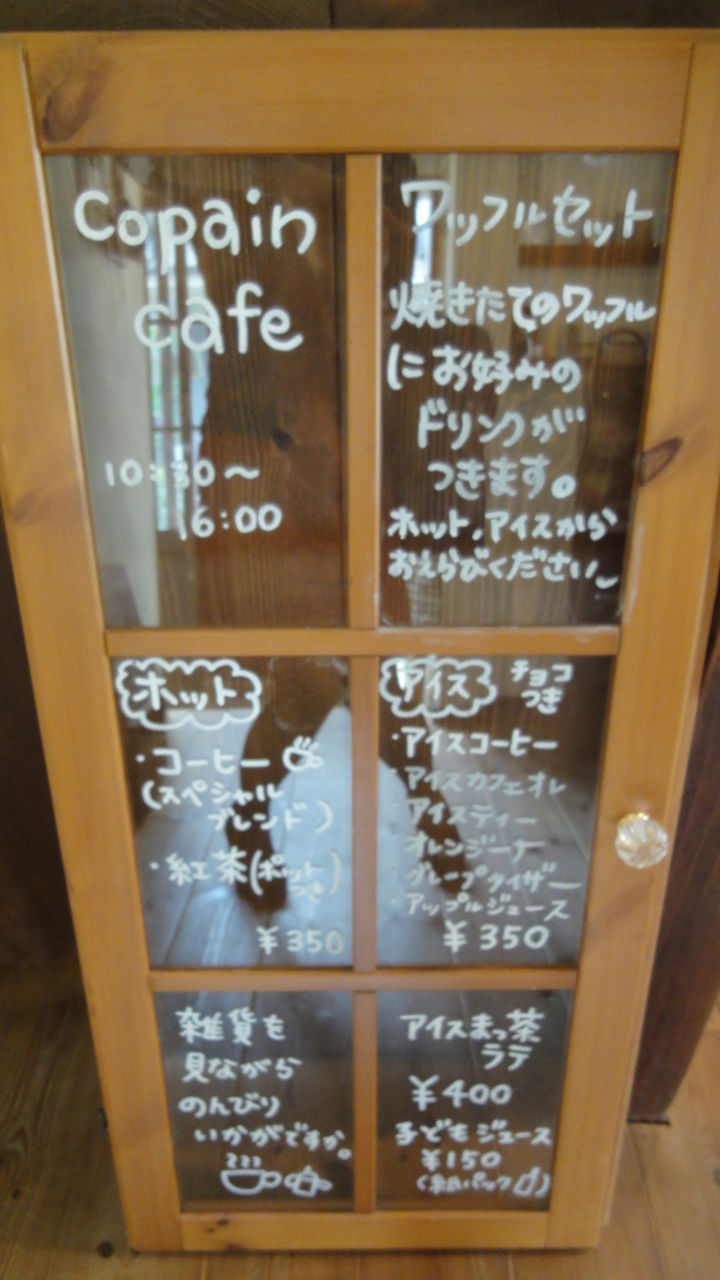 copain
cafe
10:30～
16:00
ワッフルセット
焼きたてのワッフル
にお好みの
ドリンクが
つきます。
ホット、アイスから
おえらびください
ホット
・コーヒー
(スペシャル
ブレンド)
・紅茶(ポット
つき)
¥350
アイス
チョコ
つき
・アイスコーヒー
・アイスカフェオレ
・アイスティー
・オレンジーナ
・グレープタイザー
・アップルジュース
¥350
雑貨を
見ながら
のんびり
いかがですか。
アイスまっ茶
ラテ
¥400
子どもジュース
¥150
(紙パック)